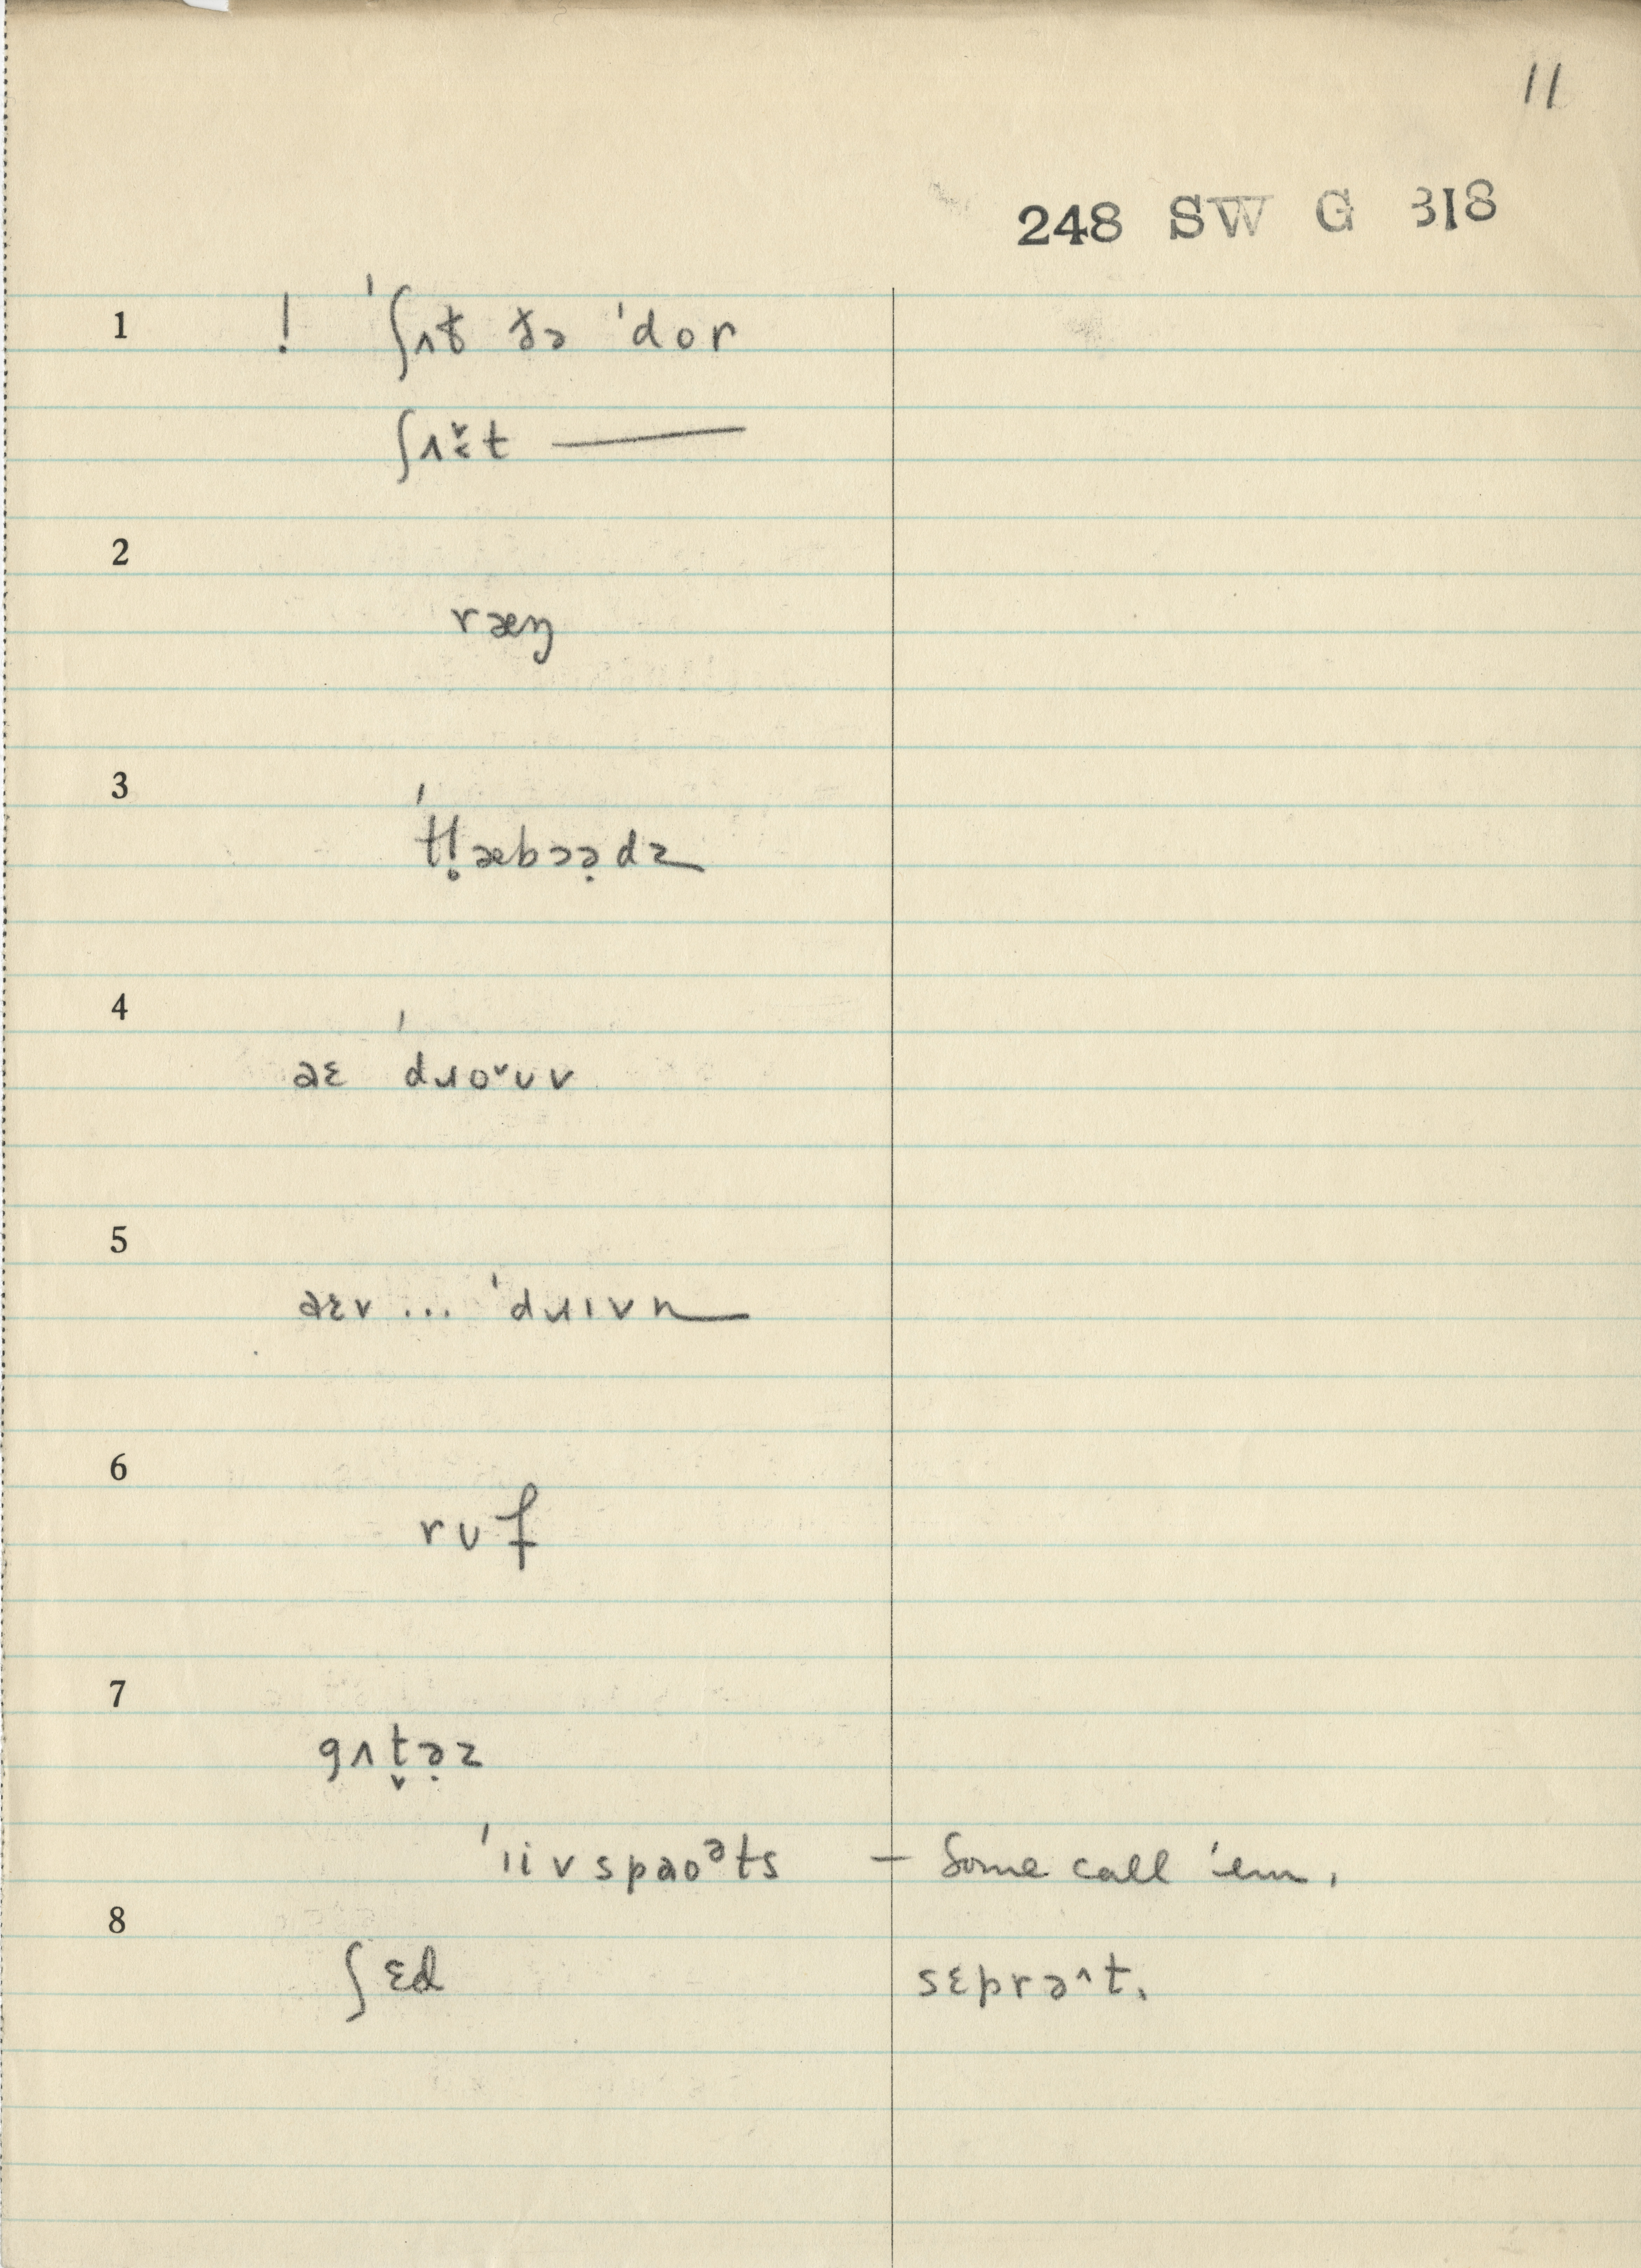 11
248 SW G 318
1 ! ˈʃʌt ðə ˈdor
ʃʌɛ̌t ——
2
ræŋ
3
ˈtl̥æbɔə̣dz
4
aɛ ˈdɹoˇʊv
5
aɛv ... ˈdɹɪvn
6
rʊf
7
gʌt̬ə̣z
ˈiivspaoᵊts — Some call 'em.
8
ʃɛd sɛprə^t.